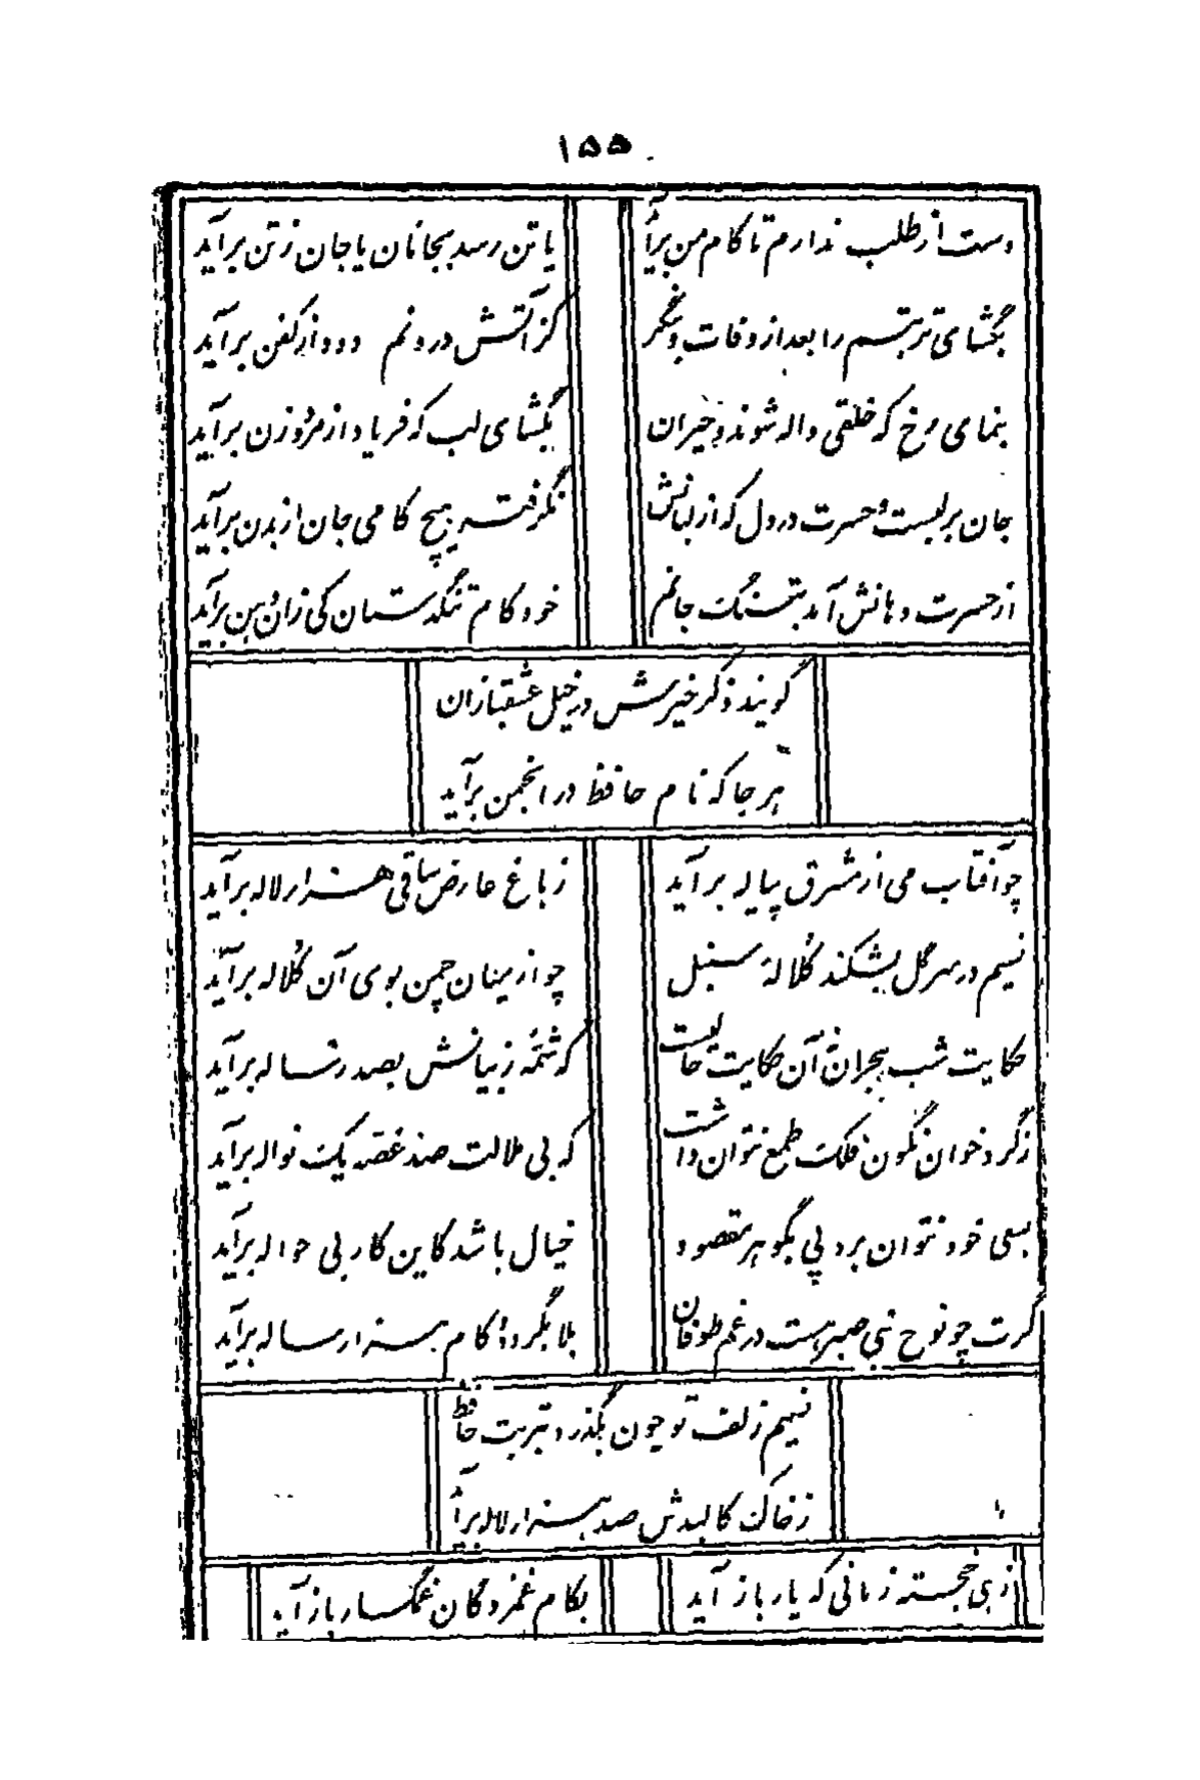 ۱۵۵
دست از طلب ندارم تا کام من برآید
یا تن رسد بجانان یا جان ز تن برآید
بگشای تربتم را بعد از وفات و بنگر
کز آتش درونم دود از کفن برآید
بنمای رخ که خلقی واله شوند و حیران
بگشای لب که فریاد از مرد و زن برآید
جان بر لبست و حسرت در دل که از لبانش
نگرفته هیچ کامی جان از بدن برآید
از حسرت دهانش آمد بتنگ جانم
خود کام تنگدستان کی زان دهن برآید
گویند ذکر خیرش در خیل عشقبازان
هر جا که نام حافظ در انجمن برآید
چو آفتاب می از مشرق پیاله برآید
ز باغ عارض ساقی هزار لاله برآید
نسیم در سر گل بشکند کلالهٔ سنبل
چو از میان چمن بوی آن کلاله برآید
حکایت شب هجران نه آن حکایت حالیست
که شمهٔ ز بیانش بصد رساله برآید
ز گرد خوان نگون فلک طمع نتوان داشت
که بی ملالت صد غصه یک نواله برآید
بسعی خود نتوان برد پی بگوهر مقصود
خیال باشد کاین کار بی حواله برآید
گرت چو نوح نبی صبر هست در غم طوفان
بلا بگردد و کام هزار ساله برآید
نسیم زلف تو چون بگذرد بتربت حافظ
ز خاک کالبدش صد هزار لاله برآید
زهی خجسته زمانی که یار باز آید
بکام غمزدگان غمگسار باز آید